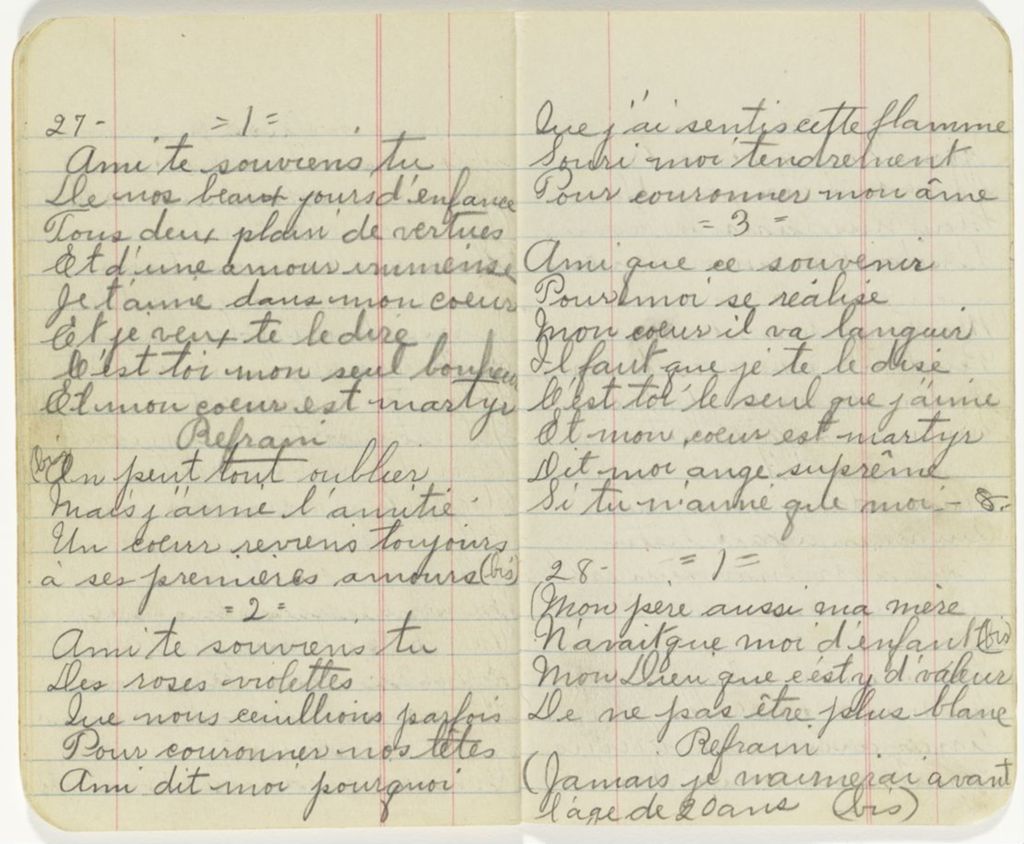 27- = 1 =
Ami te souviens tu
De nos beaux jours d'enfance
Tous deux plain de vertues
Et d'une amour immense
Je t'aime dans mon coeur
Et je veux te le dire
C'est toi mon seul bonheur
Et mon coeur est martyr
Refrain
(bis) On peut tout oublier
Mais j'aime l'amitié
Un coeur reviens toujours
à ses premières amours (bis)
= 2 =
Ami te souviens tu
Des roses violettes
Que nous ceuillions parfois
Pour couronner nos têtes
Ami dit moi pourquoi
Que j'ai sentis cette flamme
Souri moi tendrement
Pour couronner mon âme
= 3 =
Ami que ce souvenir
Pour moi se réalise
Mon coeur il va languir
Il faut que je te le dise
C'est toi le seul que j'aime
Et mon coeur est martyr
Dit moi ange suprême
Si tu n'aime que moi - 8.
28- = 1 =
(Mon père aussi ma mère
N'avait que moi d'enfant (bis)
Mon Dieu que c'ést y d'valeur
De ne pas être plus blanc
Refrain
(Jamais je m'aimerai avant
l'age de 20 ans (bis)